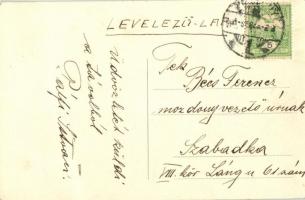 LEVELEZŐ-LAP
Üdvözletét küldi
a távolból
Pálfi István
Tek.
Bécs Ferencz
mozdonyvezető úrnak
Szabadka
VIII. kör Láng u. 61. szám